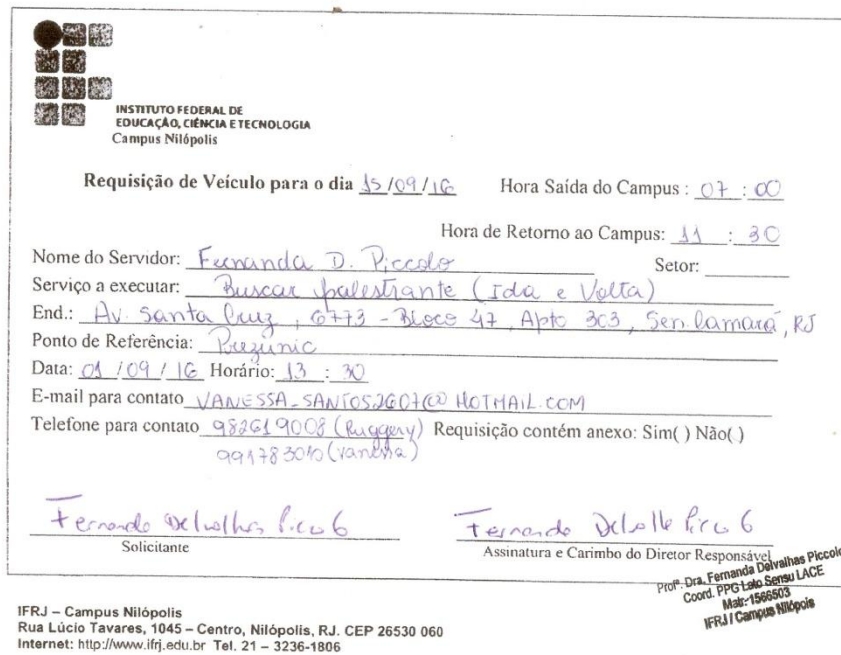 INSTITUTO FEDERAL DE
EDUCAÇÃO, CIÊNCIA E TECNOLOGIA
Campus Nilópolis
Requisição de Veículo para o dia 15/09/16 Hora Saída do Campus : 07 : 00
Hora de Retorno ao Campus: 11 : 30
Nome do Servidor: Fernanda D. Piccolo Setor:
Serviço a executar: Buscar palestrante (Ida e Volta)
End.: Av. Santa Cruz, 6773 - Bloco 47, Apto 303, Sen. Camará, RJ
Ponto de Referência: Prezunic
Data: 01 / 09 / 16 Horário: 13 : 30
E-mail para contato VANESSA_SANTOS2607@HOTMAIL.COM
Telefone para contato 982619008 (Ruggery) Requisição contém anexo: Sim( ) Não( )
991783010 (Vanessa)
Fernanda Delvalhas Piccolo Fernanda Piccolo
Solicitante Assinatura e Carimbo do Diretor Responsável
Profª. Dra. Fernanda Delvalhas Piccolo
Coord. PPG Lato Sensu LACE
Matr-1566503
IFRJ / Campus Nilópolis
IFRJ – Campus Nilópolis
Rua Lúcio Tavares, 1045 – Centro, Nilópolis, RJ. CEP 26530 060
Internet: http://www.ifrj.edu.br Tel. 21 – 3236-1806